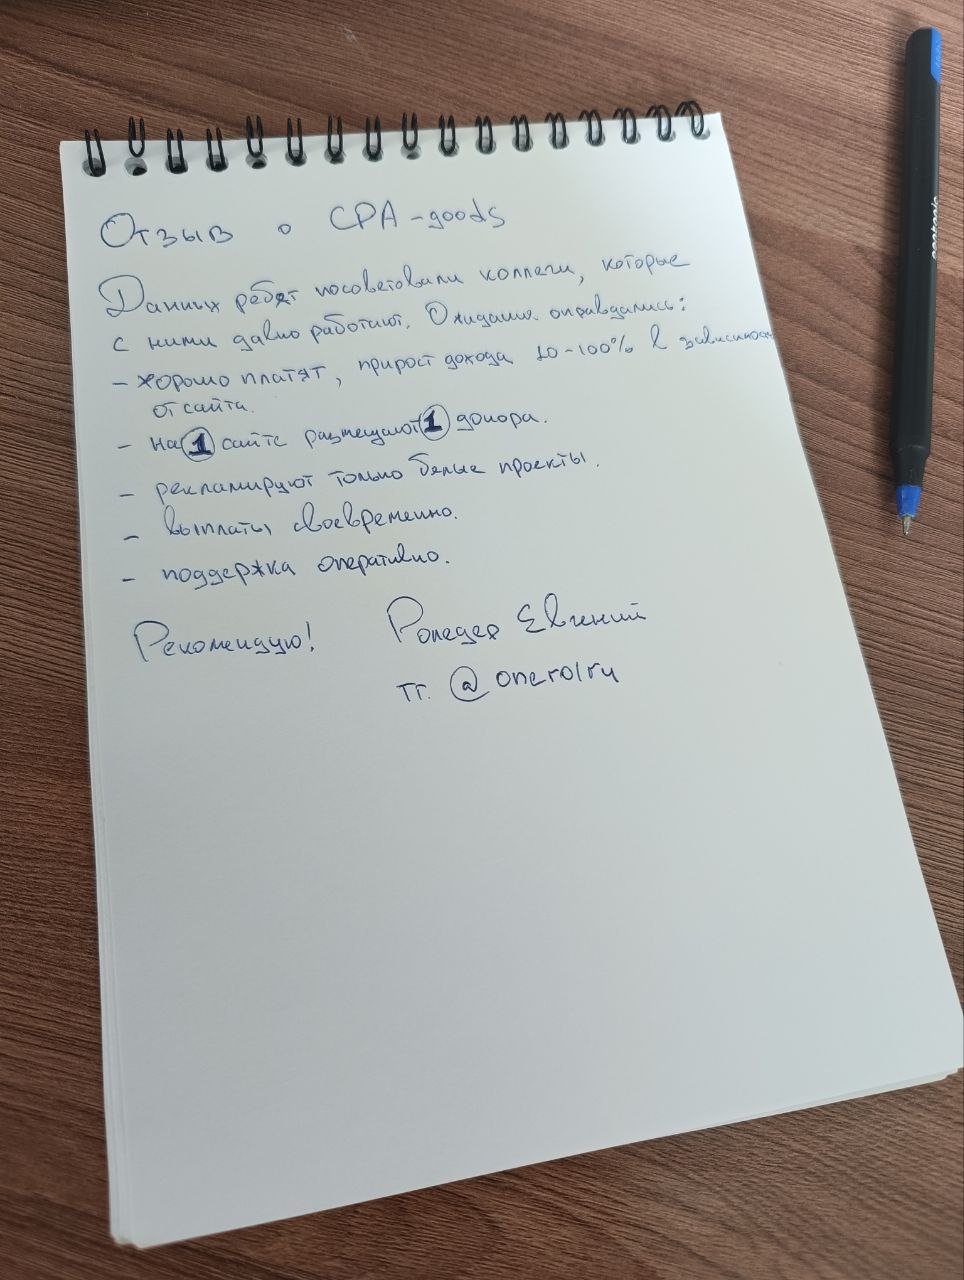 Отзыв о CPA-goods
Данных ребят посоветовали коллеги, которые
с ними давно работают. Ожидания оправдались:
- хорошо платят, прирост дохода 10-100% в зависимости
от сайта.
- на 1 сайте размещают 1 донора.
- рекламируют только белые проекты.
- выплаты своевременно.
- поддержка оперативно.
Рекомендую! Евгений
тг. @onerolru